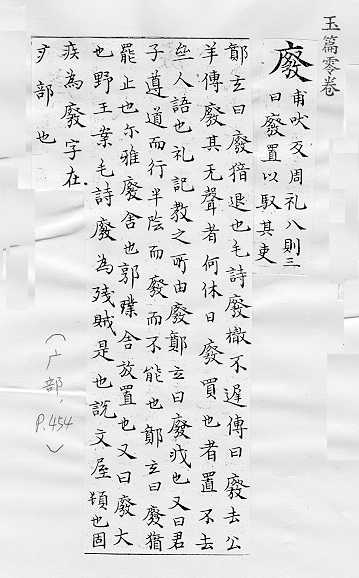 玉篇零卷
廢 甫吠反周礼八則三
曰廢置以馭其吏
鄭玄曰廢猶退也毛詩廢檄不遲傳曰廢去公
羊傳廢其无聲者何休曰廢買也者置不去
人語也礼記教之所由廢鄭玄曰廢也又曰君
子遵道而行半塗而廢而不能也鄭玄曰廢猶
罷止也尒雅廢舍也郭璞舍放置也又曰廢大
也野王案毛詩廢為殘賊是也說文屋頓也固
疾為廢字在
疒部也
(广部, P.454)